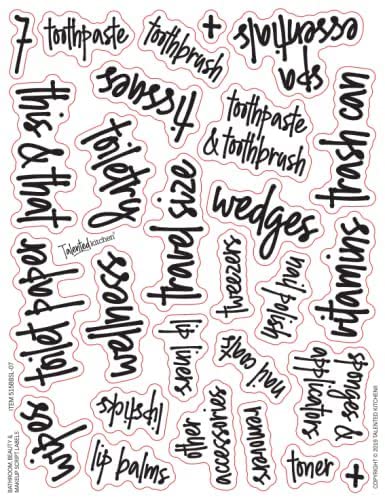 7
toothpaste
toothbrush
+
spa
essentials
this & that
toiletry
tissues
toothpaste
& toothbrush
trash can
travel size
wedges
Talented
Kitchen®
toilet paper
wellness
tweezers
nail polish
vitamins
lip liners
nail coats
sponges &
applicators
wipes
lipsticks
lip balms
other
accessories
removers
toner
+
BATHROOM, BEAUTY &
MAKEUP SCRIPT LABELS
COPYRIGHT © 2019 TALENTED KITCHEN®